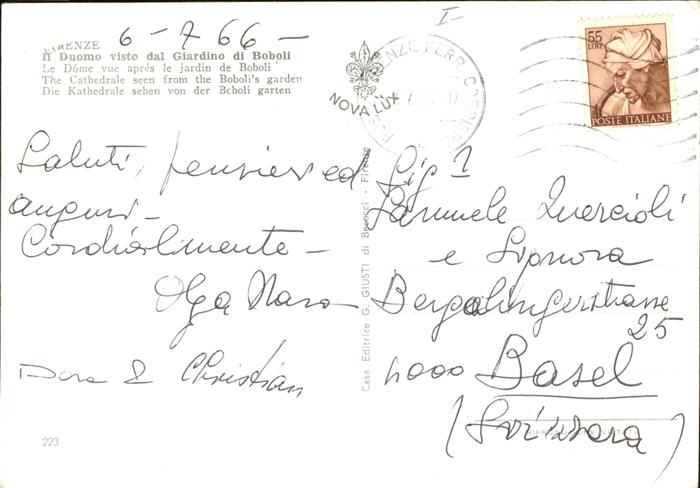 FIRENZE 6-7 66-
Il Duomo visto dal Giardino di Boboli
Le Dôme vue aprés le jardin de Boboli
The Cathedrale seen from the Boboli's garden
Die Kathedrale sehen von der Boboli garten
NOVA LUX
55
LIRE
POSTE ITALIANE
Saluti, pensieri ed
auguri-
Cordialmente-
Olga
Dora & Christian
223
Casa Editrice G. GIUSTI di Becocci - Firenze
Sig.
Samuele Quercioli
e Signora
25
4000 Basel
(Svizzera)
RIPRODUZIONE VIETATA